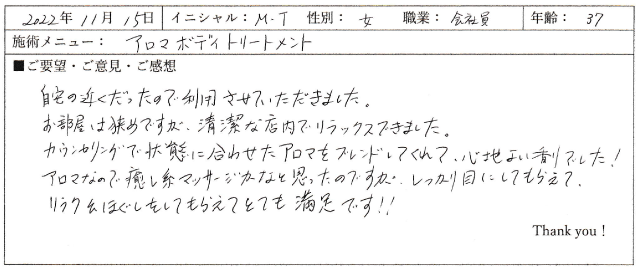 2022年 11月 15日 イニシャル： M・T 性別： 女 職業： 会社員 年齢： 37
施術メニュー： アロマボディトリートメント
■ご要望・ご意見・ご感想
自宅の近くだったので利用させていただきました。
お部屋は狭めですが、清潔な店内でリラックスできました。
カウンセリングで状態に合わせたアロマをブレンドしてくれて、心地よい香りでした！
アロマなので癒し系マッサージかなと思ったのですが、しっかり目にしてもらえて、
リラク系ほぐしをしてもらえてとても満足です！！
Thank you！